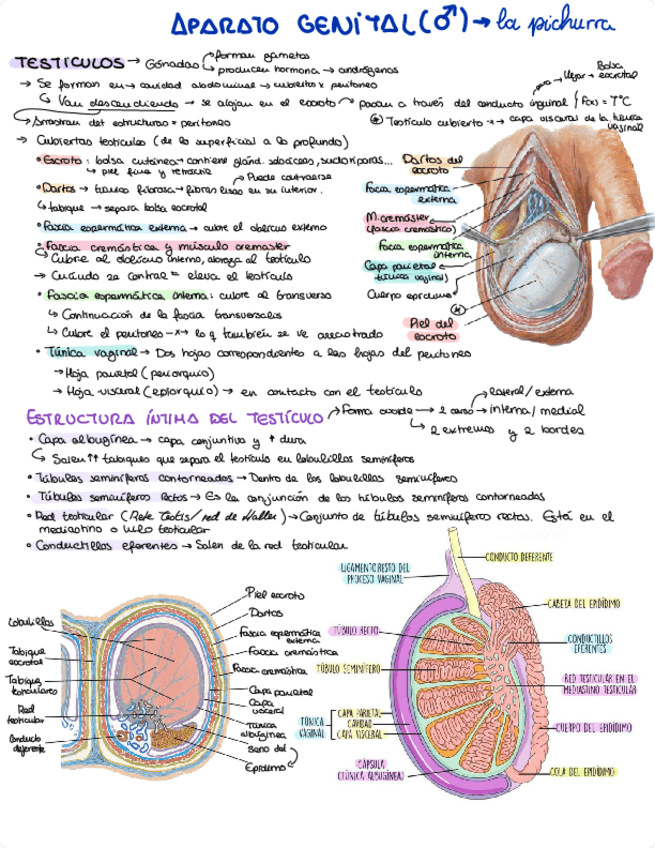 APARATO GENITAL (♂) → la pichurra
TESTÍCULOS → Gónadas → forman gametos
→ producen hormona → andrógenos
→ Se forman en → cavidad abdominal → cubierto x peritoneo
↳ Van descendiendo → se alojan en el escroto → pasan a través del conducto inguinal / F(x) = Tª C
para → llegar → Bolsa escrotal
↳ Arrastran dif estructuras = peritoneo
* Testículo cubierto → x → capa visceral de la túnica vaginal
→ Cubiertas testiculares (de lo superficial a lo profundo)
• Escroto: bolsa cutánea → contiene glánd. sebáceas, sudoríparas...
↳ piel fina y retráctil
• Dartos → túnica fibrosa → fibras lisas en su interior.
→ Puede contraerse
↳ tabique → separa bolsa escrotal
• Fascia espermática externa → cubre el oblicuo externo
• Fascia cremástica y músculo cremáster
↳ Cubre al oblicuo interno, aloja al testículo
→ Cuando se contrae = eleva el testículo
• Fascia espermática interna: cubre al transverso
↳ Continuación de la fascia transversalis
↳ Cubre el peritoneo → x → lo q también se ve arrastrado
• Túnica vaginal → Dos hojas correspondientes a las hojas del peritoneo
→ Hoja parietal (periorquio)
→ Hoja visceral (epiorquio) → en contacto con el testículo
Dartos del escroto
Fascia espermática externa
M. cremáster (fascia cremástica)
Fascia espermática interna
Capa parietal (túnica vaginal)
Cuerpo epidídimo
*
Piel del escroto
ESTRUCTURA ÍNTIMA DEL TESTÍCULO → Forma ovoide → 2 caras → lateral / externa
interna / medial
↳ 2 extremos y 2 bordes
• Capa albugínea → capa conjuntiva y ↑ dura
↳ Salen ↑↑ tabiques que separa el testículo en lobulillos seminíferos
• Túbulos seminíferos contorneados → Dentro de los lobulillos seminíferos
• Túbulos seminíferos rectos → Es la conjunción de los túbulos seminíferos contorneados
• Red testicular (Rete testis / red de Haller) → Conjunto de túbulos seminíferos rectos. Está en el
mediastino o hilio testicular
• Conductillos eferentes → Salen de la red testicular
Lobulillos
Tabique escrotal
Tabique testiculares
Red testicular
Conducto deferente
Piel escroto
Dartos
Fascia espermática externa
Fascia cremástica
Fascia cremástica
Capa parietal
Capa visceral
Túnica albugínea
Seno del Epidídimo
CONDUCTO DEFERENTE
LIGAMENTO RESTO DEL PROCESO VAGINAL
CABEZA DEL EPIDÍDIMO
TÚBULO RECTO
CONDUCTILLOS EFERENTES
TÚBULO SEMINÍFERO
RED TESTICULAR EN EL MEDIASTINO TESTICULAR
TÚNICA VAGINAL
CAPA PARIETAL
CAVIDAD
CAPA VISCERAL
CUERPO DEL EPIDÍDIMO
CÁPSULA (TÚNICA ALBUGÍNEA)
COLA DEL EPIDÍDIMO